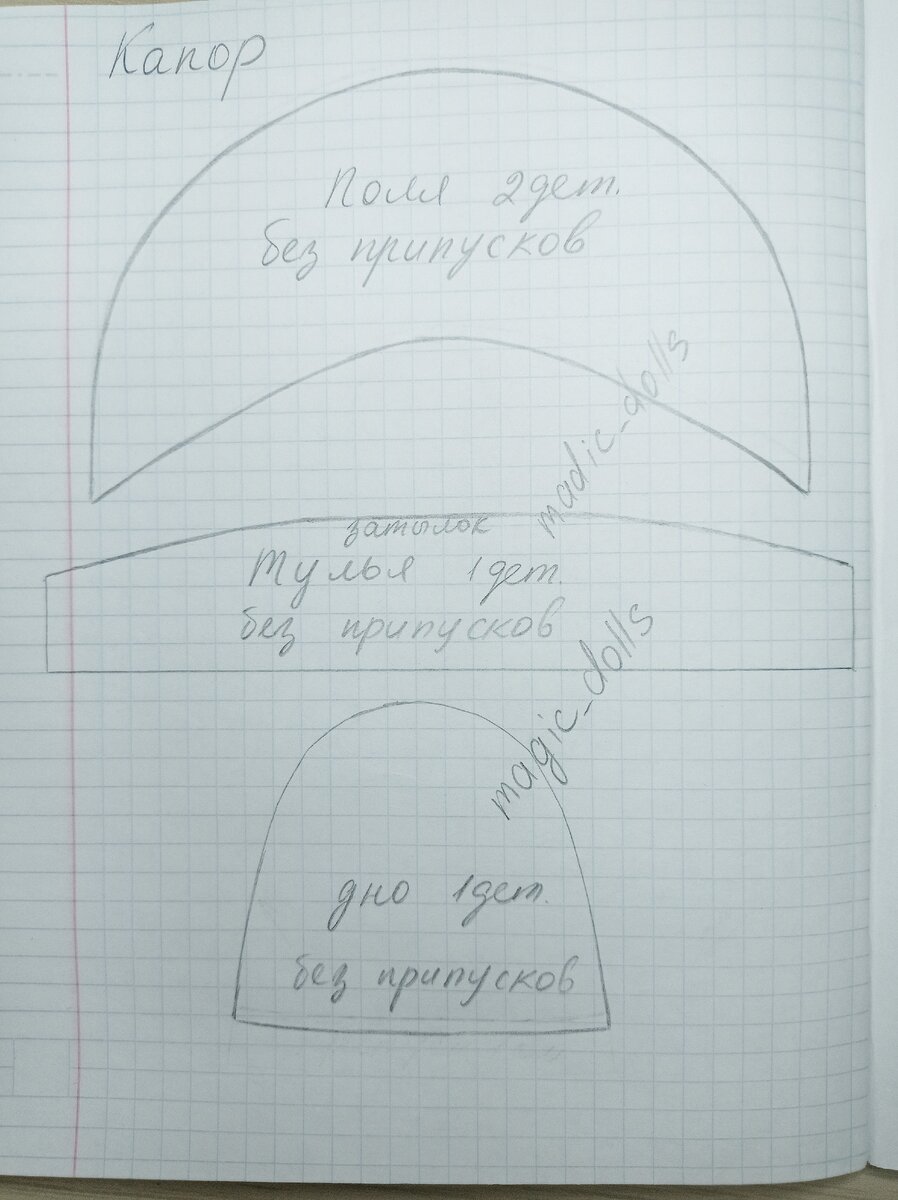 Капор
Поля 2дет.
без припусков
madic_dolls
затылок
Тулья 1дет.
без припусков
magic_dolls
дно 1дет.
без припусков